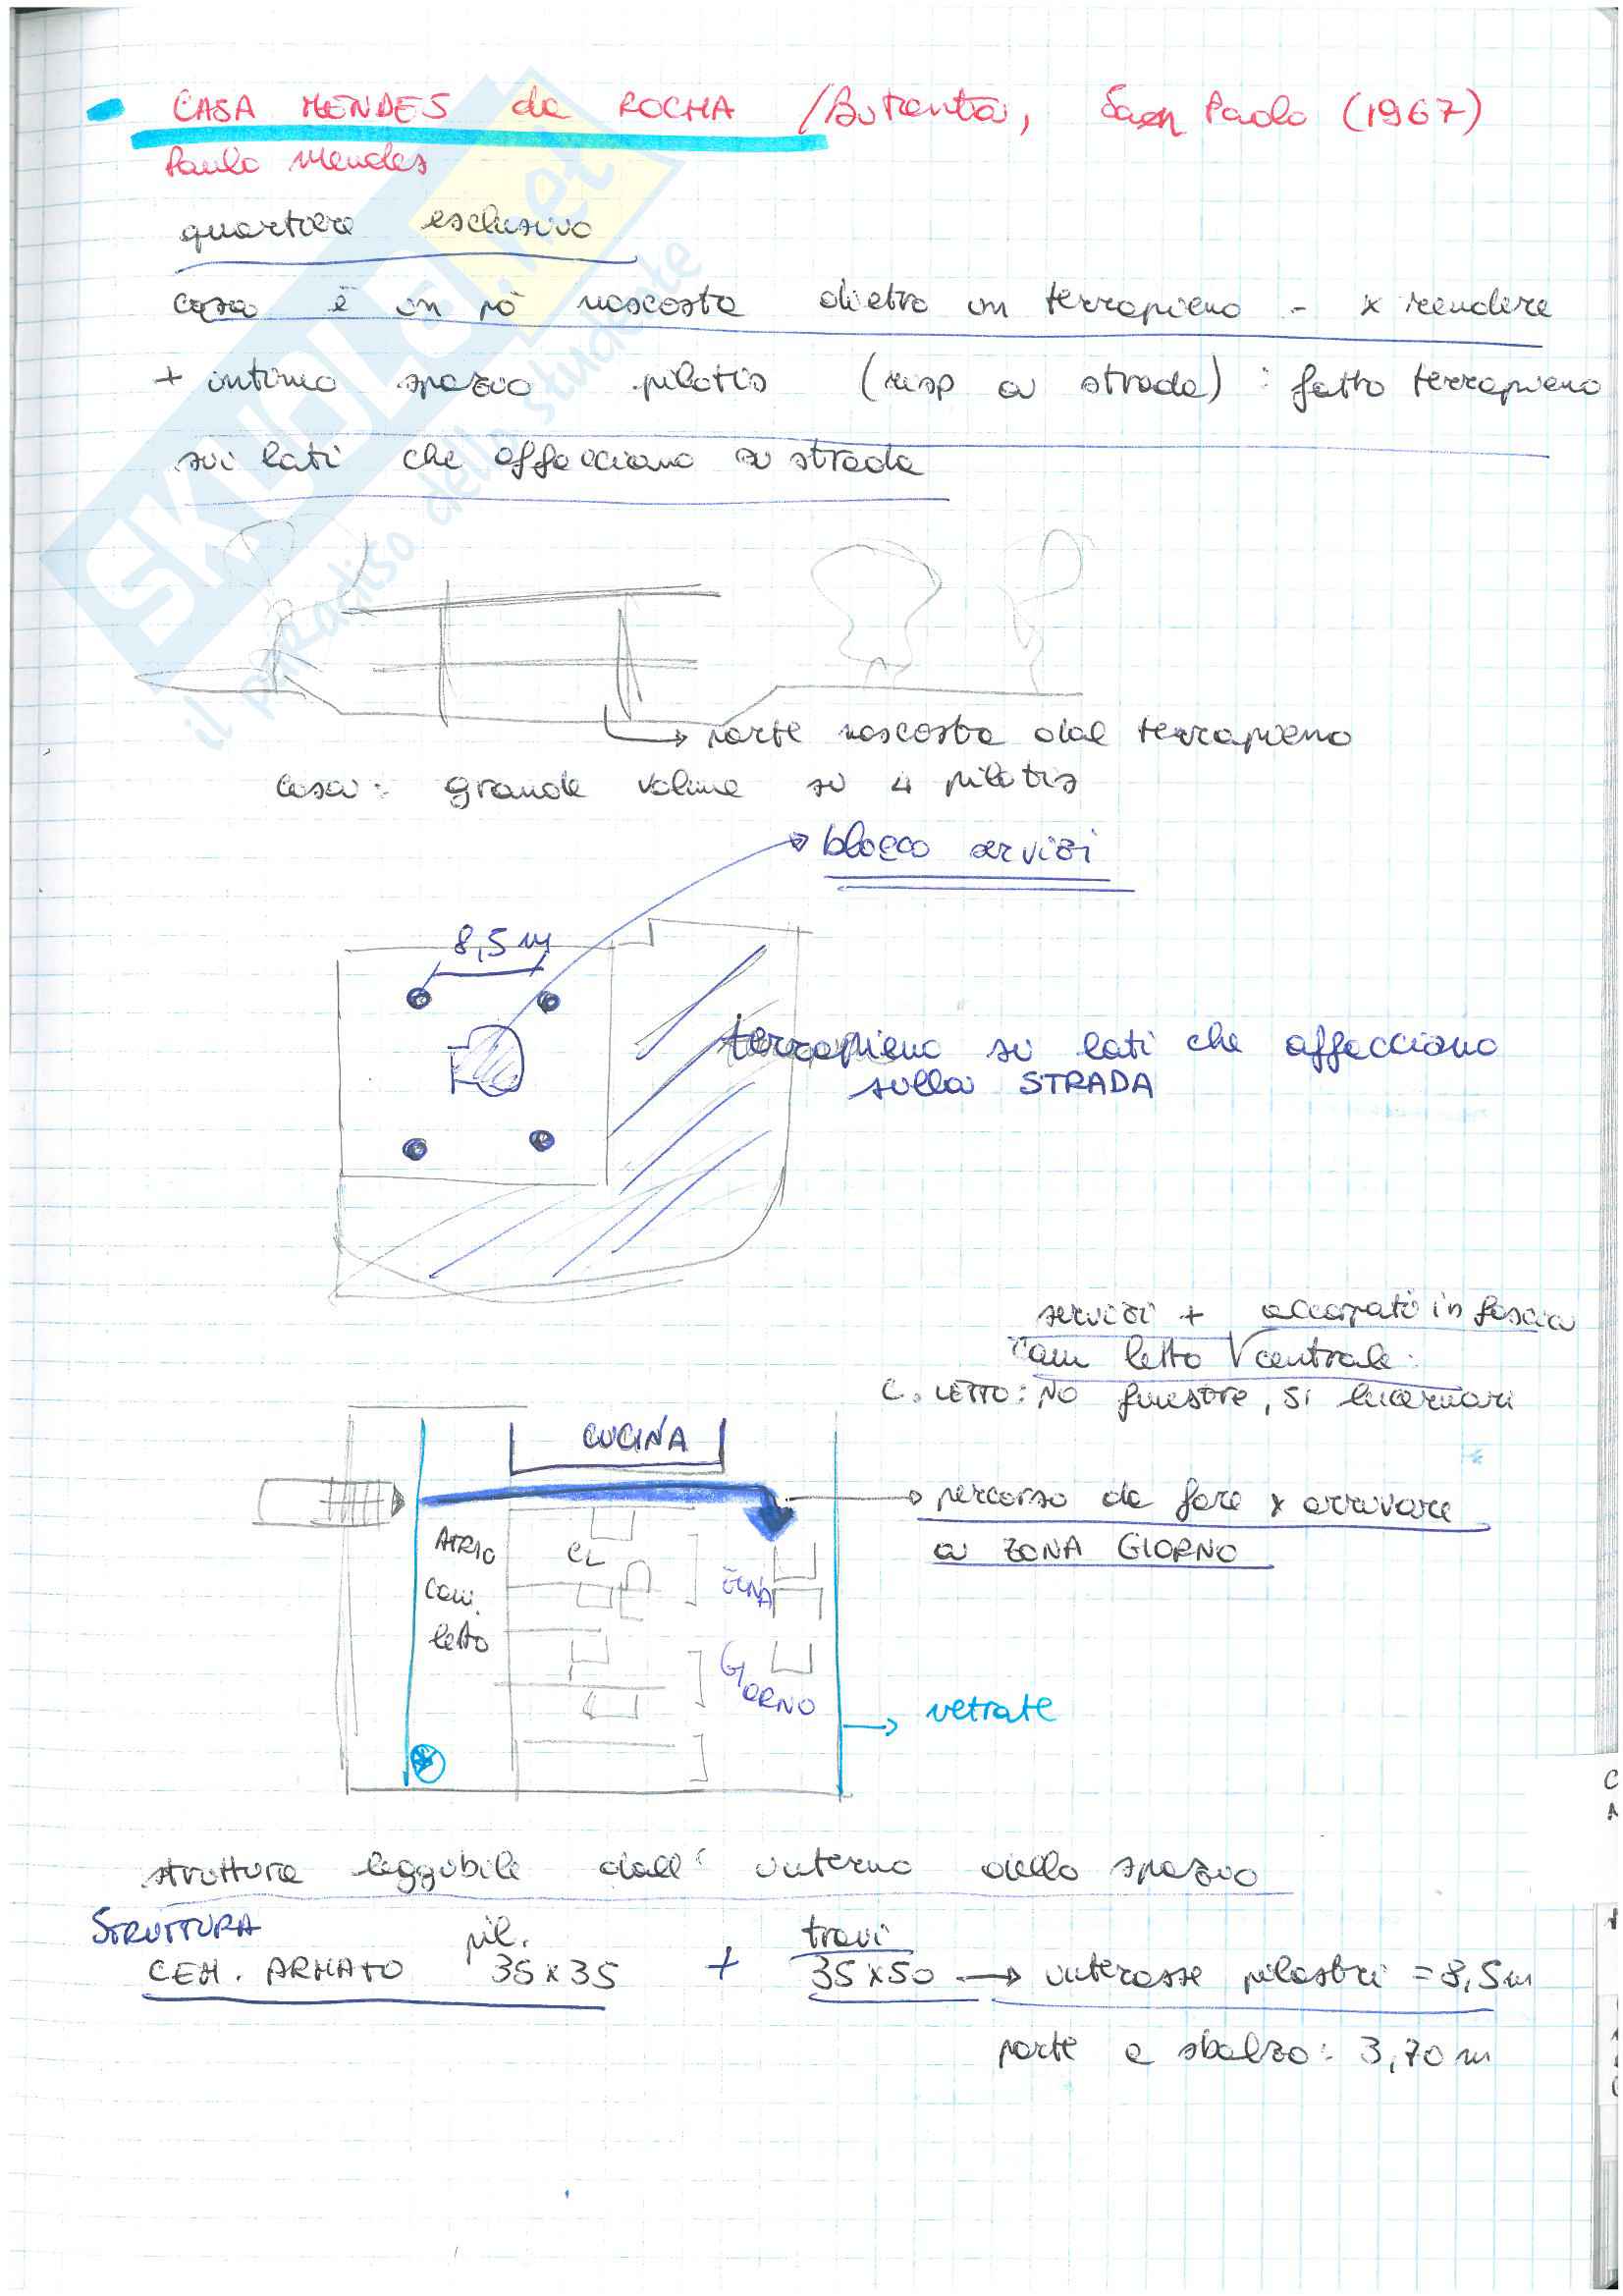 CASA MENDES da ROCHA / Butanta, San Paolo (1967)
Paulo Mendes
quartiere esclusivo
casa è un pò nascosta dietro un terrapieno - x rendere
+ intimo spazio pilotis (risp a strada) : fatto terrapieno
sui lati che affacciano su strada
parte nascosta dal terrapieno
casa: grande volume su 4 pilotis
blocco servizi
8,5 m
terrapieno su lati che affacciano
sulla STRADA
servizi + accorpati in fascia
cam letto centrale:
C. LETTO: NO finestre, SI lucernari
CUCINA
percorso da fare x arrivare
a ZONA GIORNO
ATRIO
CL
cam.
letto
ZONA
GIORNO
vetrate
struttura leggibile dall' interno dello spazio
STRUTTURA pil. travi
CEM. ARMATO 35x35 + 35x50 → interasse pilastri = 8,5m
parte a sbalzo: 3,70 m
SKUOLA.net
il paradiso dello studente